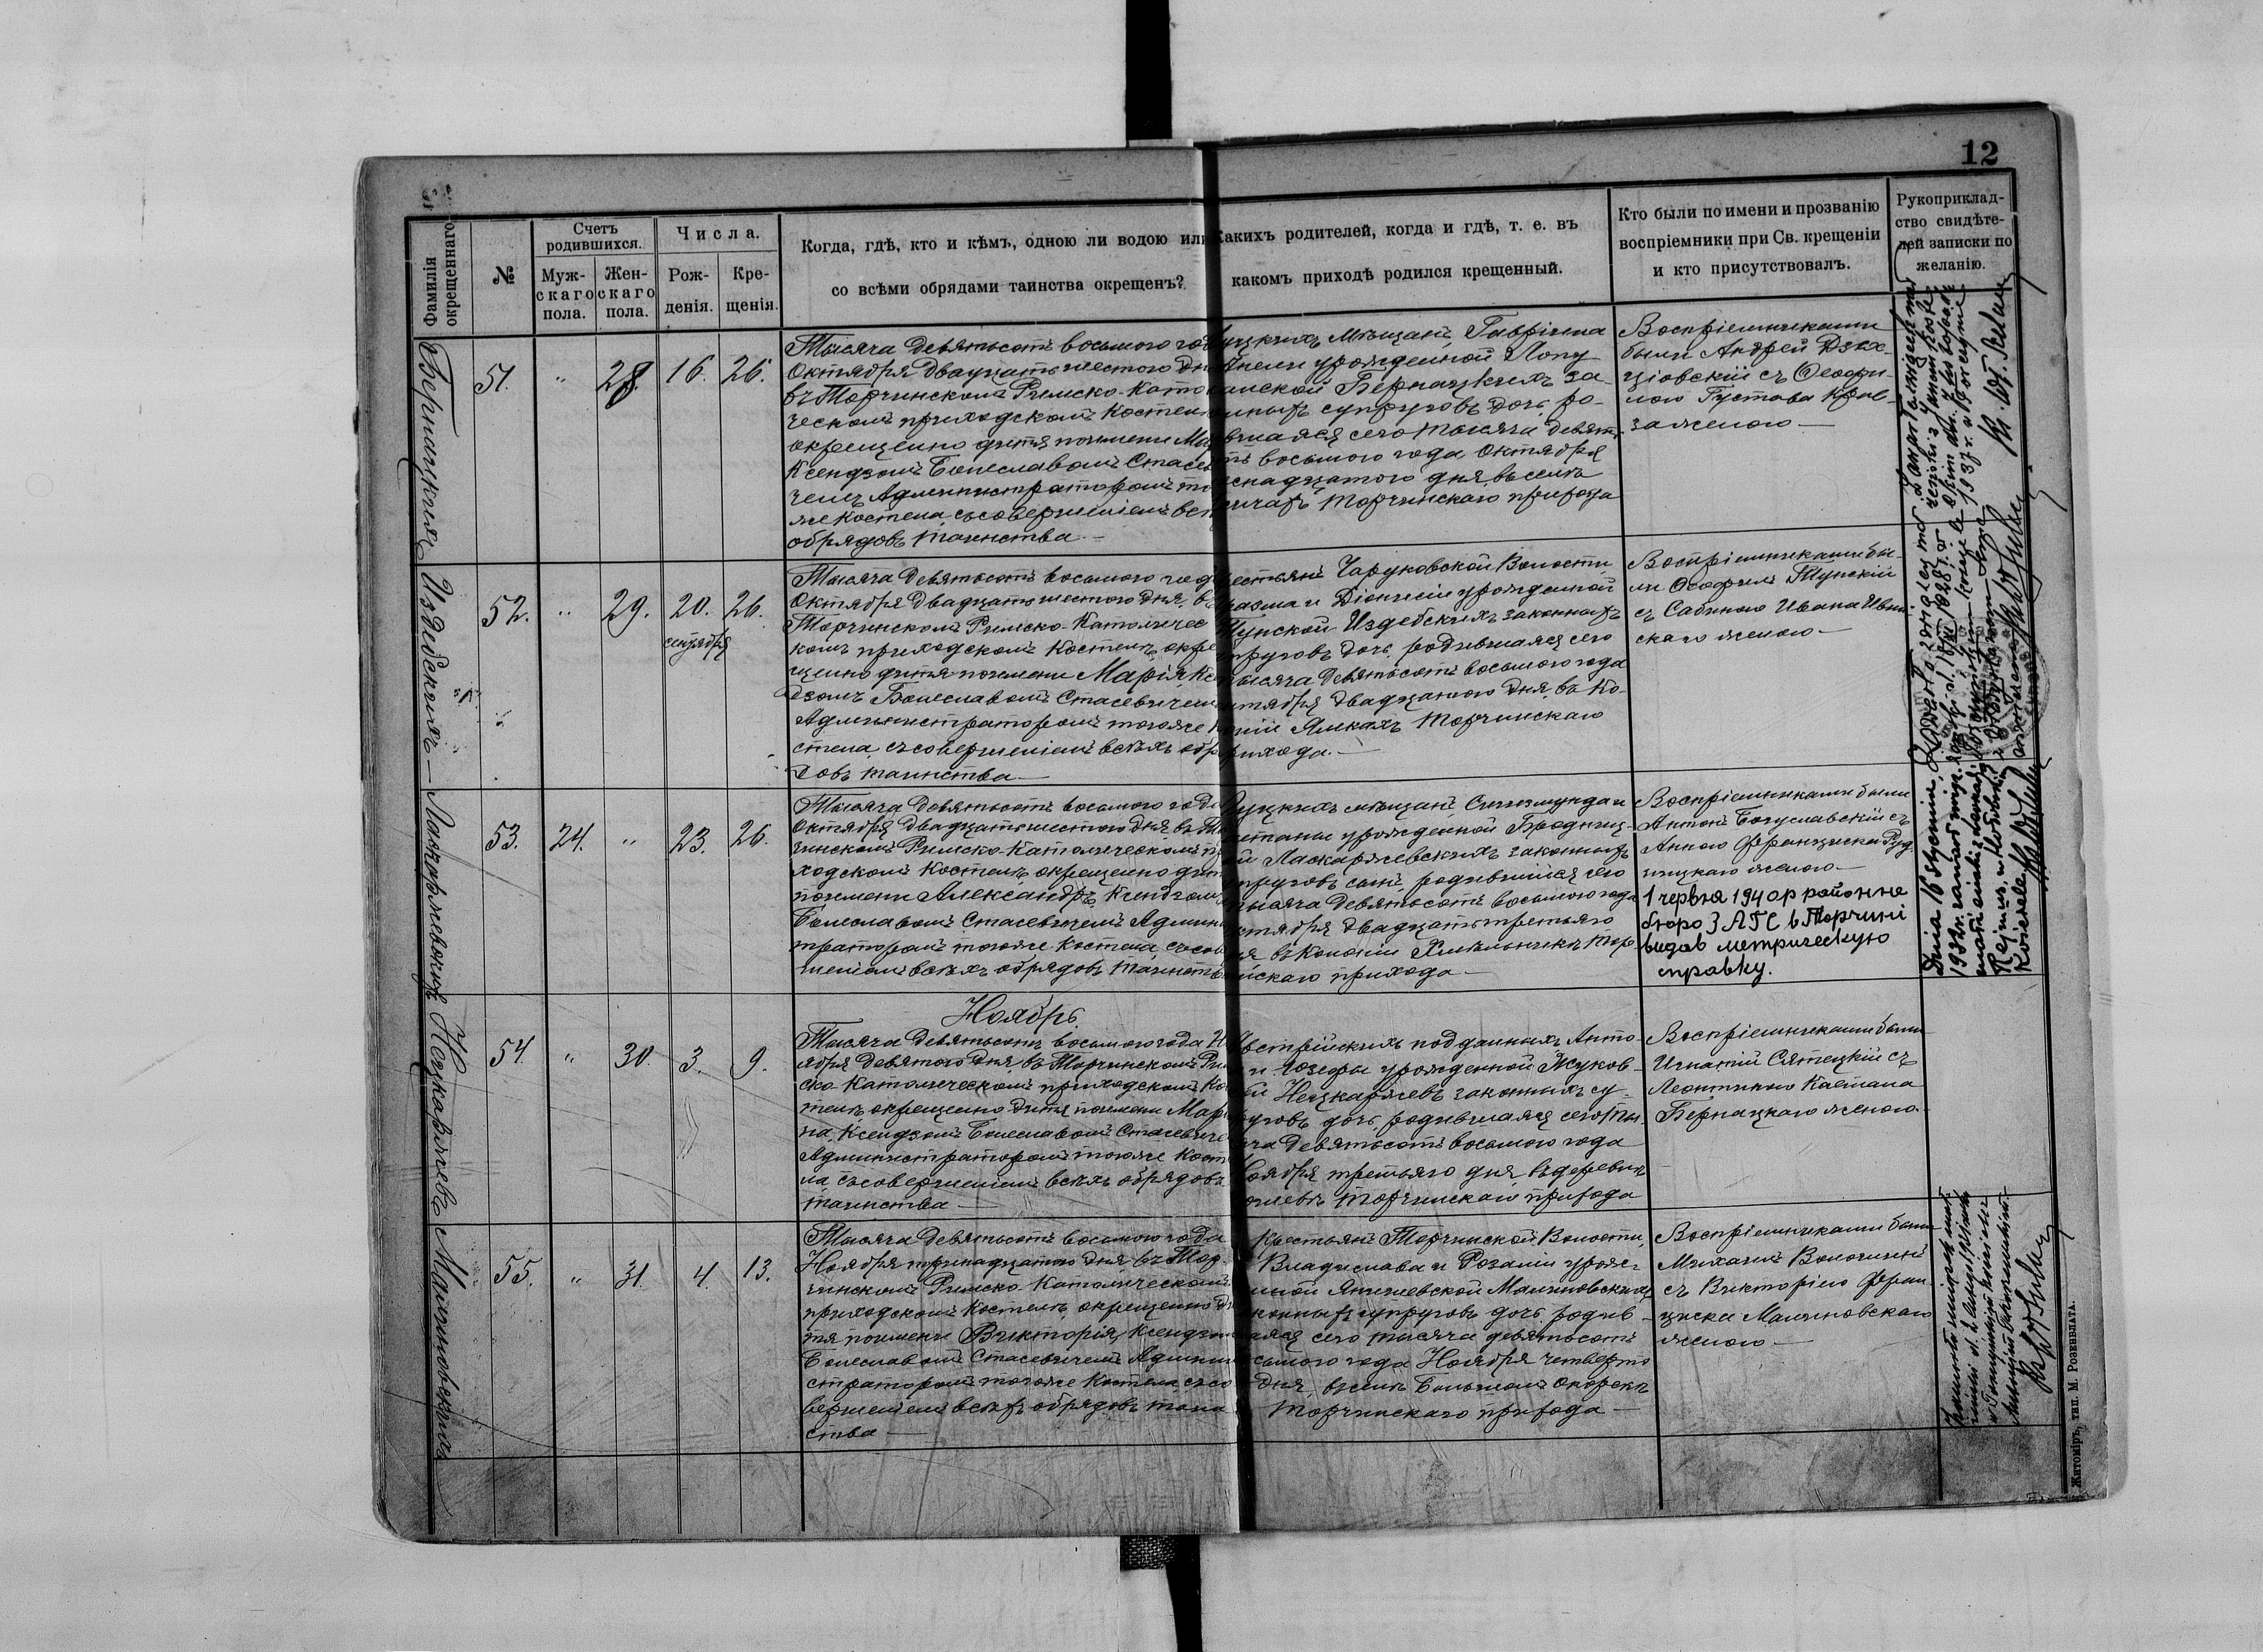 12
Фамилія окрещеннаго
№
Счетъ родившихся.
Муж-
скаго
пола.
Жен-
скаго
пола.
Числа.
Рож-
денія.
Кре-
щенія.
Когда, гдѣ, кто и кѣмъ, одною ли водою или
со всѣми обрядами таинства окрещенъ?
Какихъ родителей, когда и гдѣ, т. е. въ
какомъ приходѣ родился крещенный.
Кто были по имени и прозванію
воспріемники при Св. крещеніи
и кто присутствовалъ.
Рукоприклад-
ство свидѣте-
лей записки по
желанію.
Бернацкихъ
51. " 28 16. 26.
Тысяча девятьсотъ восьмого год
Октября двадцать шестого дн
въ Торчинскомъ Римско-Като
ческомъ приходскомъ Костел
окрещено дитя по имени Ма
Ксендзомъ Болеславомъ Стасев
чемъ Администраторомъ то
же Костела, съ совершеніемъ вс
обрядовъ таинства
Луцкихъ Мѣщанъ, Гавріила
Анели урожденной Лопу
анской Бернацкихъ за-
онныхъ супруговъ дочь, ро-
вшаяся сего тысяча девять
тъ восьмого года, Октября
снадцатого дня, въ селѣ
Торчинскаго прихода
Воспріемниками
были Андрей
ціовскій съ Ѳеофи-
лою Густава Крав-
за женою
Издебскихъ
52. " 29. 20. 26.
сентября
Тысяча девятьсотъ восьмого год
Октября двадцать шестого дня, въ
Торчинскомъ Римско-Католичес
комъ приходскомъ Костелѣ окре
щено дитя по имени Марія, Ксен
дзомъ Болеславомъ Стасевичем
Администраторомъ того же Ко
стела, съ совершеніемъ всѣхъ обр
довъ таинства
рестьянъ Чаруковской Волости
разма и Діонисіи урожденной
Тупской Издебскихъ законныхъ
упруговъ дочь, родившаяся сего
тысяча девятьсотъ восьмого года
нтября двадцатого дня, въ Ко-
оніи Ямкахъ Торчинскаго
рихода
Воспріемниками бы-
ли Ѳеофилъ Тупскій
съ Сабиною Ивана
скаго женою
Ласкаржевскихъ
53. 24. " 23. 26.
Тысяча девятьсотъ восьмого года
Октября двадцать шестого дня въ То
чинскомъ Римско-Католическомъ пр
ходскомъ Костелѣ, окрещено дит
по имени Александръ, Ксендзомъ
Болеславомъ Стасевичемъ Админ
траторомъ того же Костела, съ сов
шеніемъ всѣхъ обрядовъ таинств
Луцкихъ мѣщанъ, Сигизмунда и
етаны урожденной Бродниц-
ой Ласкаржевскихъ законныхъ
упруговъ сынъ, родившійся сего
тысяча девятьсотъ восьмого года
ктября двадцать третьяго
ня въ Колоніи Хмѣльникъ Тор-
инскаго прихода
Воспріемниками были
Антонъ Богуславскій съ
Анною Франциска Руд-
ницкаго женою
1 червня 1940р районне
бюро ЗАГС в Торчині
видав метрическую
справку.
Нецкаржевъ
Ноябрь
54 " 30. 3. 9.
Тысяча девятьсотъ восьмого года Н
ября девятого дня, въ Торчинскомъ Ри
ско-Католическомъ приходскомъ Ко
телѣ, окрещено дитя по имени Мар
на, Ксендзомъ Болеславомъ Стасевиче
Администраторомъ того же Кост
ла, съ совершеніемъ всѣхъ обрядовъ
таинства
Австрійскихъ подданныхъ, Анто-
и Юзефы урожденной Жуков-
ой Нецкаржевъ законныхъ су-
уговъ дочь, родившаяся сего ты-
яча девятьсотъ восьмого года
Ноября, третьяго дня, въ деревнѣ
Торчинскаго прихода
Воспріемниками были
Игнатій Сятецкій съ
Леонтиною Каетана
Бернацкаго женою
Малиновскихъ
55. " 31. 4. 13.
Тысяча девятьсотъ восьмого года
Ноября тринадцатого дня въ Тор-
чинскомъ Римско-Католическомъ
приходскомъ Костелѣ, окрещено ди
тя по имени Викторія, Ксендзом
Болеславомъ Стасевичемъ Админи
страторомъ того же Костела, съ со
вершеніемъ всѣхъ обрядовъ таин
ства
Крестьянъ Торчинской Волости,
Владислава и Розаліи урож-
нной Янчевской Малиновскихъ
конныхъ супруговъ дочь, родив-
аяся сего тысяча девятьсотъ
сьмого года Ноября четвертого
дня, въ селѣ Большомъ Окорскѣ
Торчинскаго прихода
Воспріемниками были
Михаилъ
съ Викторіею Фран-
циска Малиновскаго
женою
Dnia 16 stycznia
1932 r.
Kościele
Житоміръ, тип. М. Розенблата.